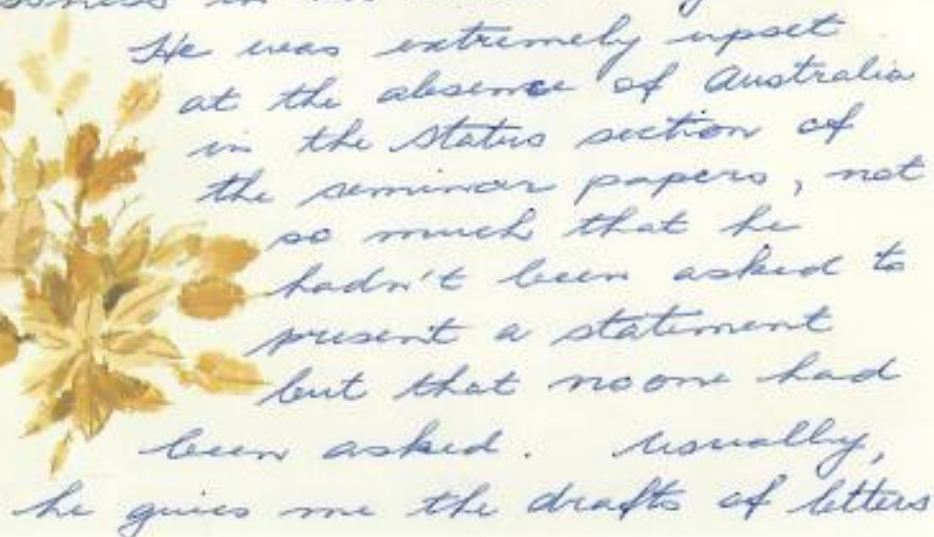 He was extremely upset
at the absence of Australia
in the status section of
the seminar papers, not
so much that he
hadn't been asked to
present a statement
but that noone had
been asked. Usually,
he gives me the drafts of letters